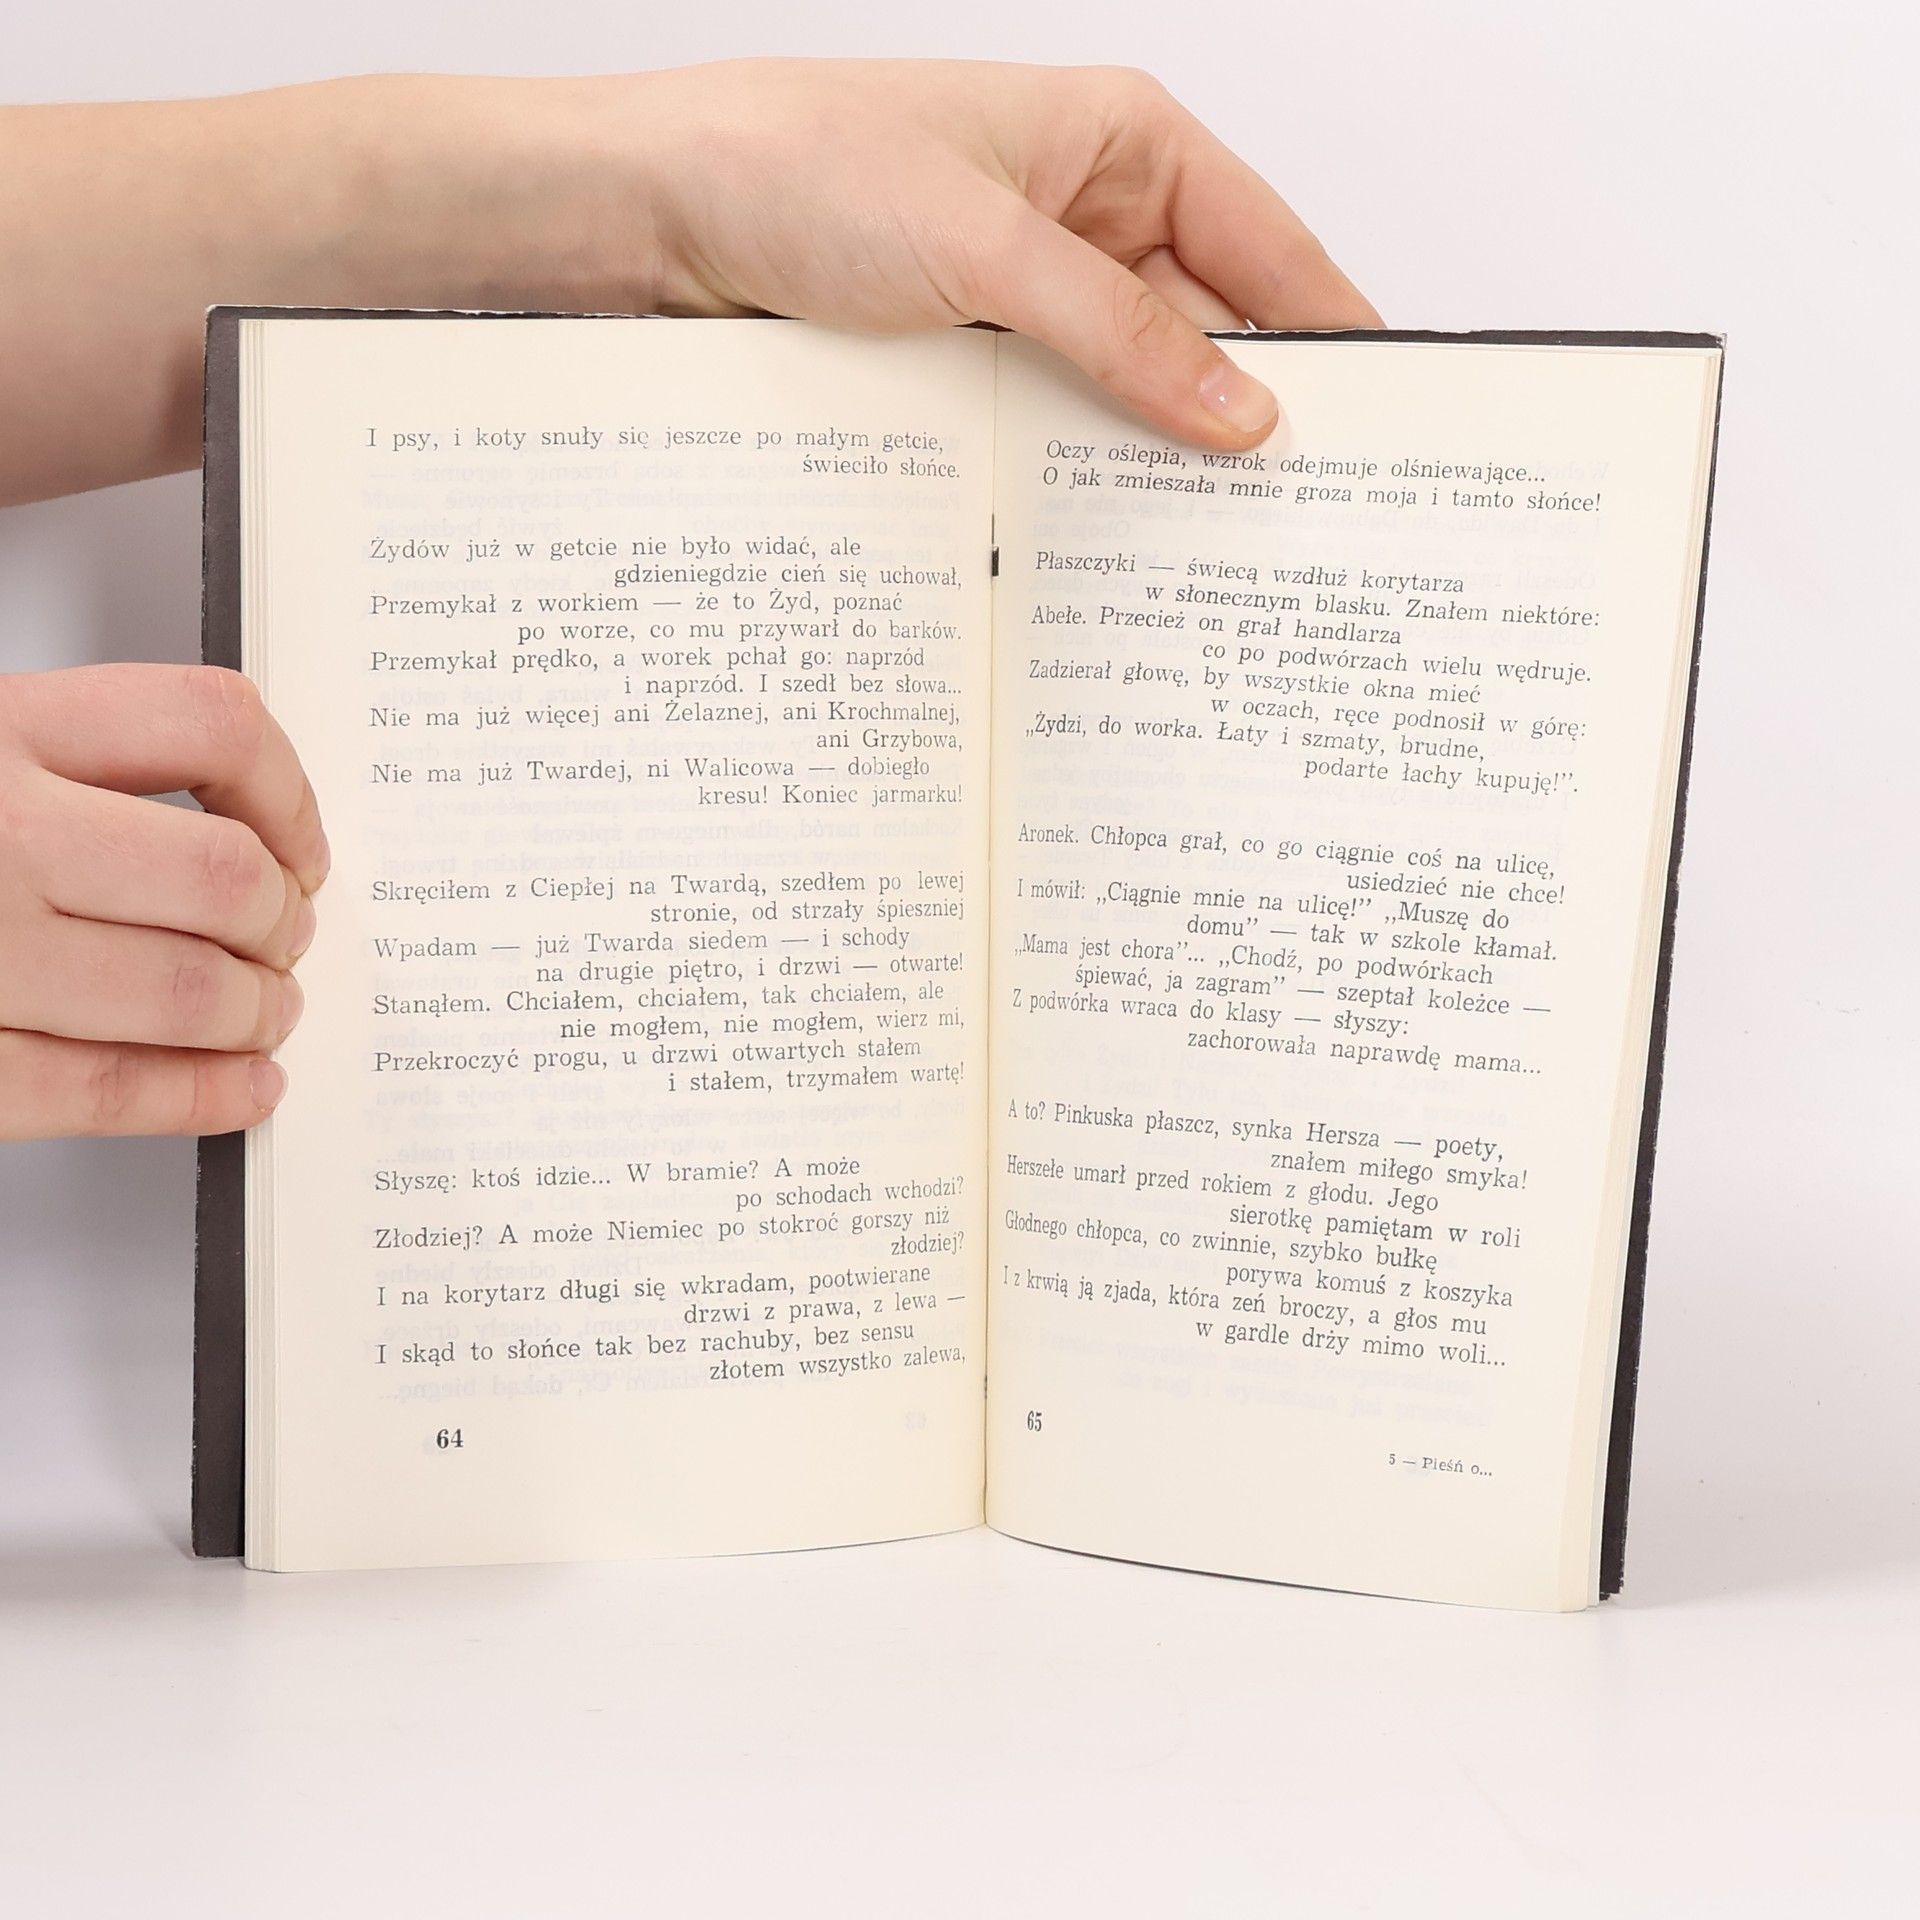 I psy, i koty snuły się jeszcze po małym getcie,
świeciło słońce.
Żydów już w getcie nie było widać, ale
gdzieniegdzie cień się uchował,
Przemykał z workiem — że to Żyd, poznać
po worze, co mu przywarł do barków.
Przemykał prędko, a worek pchał go: naprzód
i naprzód. I szedł bez słowa...
Nie ma już więcej ani Żelaznej, ani Krochmalnej,
ani Grzybowa,
Nie ma już Twardej, ni Walicowa — dobiegło
kresu! Koniec jarmarku!
Skręciłem z Ciepłej na Twardą, szedłem po lewej
stronie, od strzały śpieszniej
Wpadam — już Twarda siedem — i schody
na drugie piętro, i drzwi — otwarte!
Stanąłem. Chciałem, chciałem, tak chciałem, ale
nie mogłem, nie mogłem, wierz mi,
Przekroczyć progu, u drzwi otwartych stałem
i stałem, trzymałem wartę!
Słyszę: ktoś idzie... W bramie? A może
po schodach wchodzi?
Złodziej? A może Niemiec po stokroć gorszy niż
złodziej?
I na korytarz długi się wkradam, pootwierane
drzwi z prawa, z lewa —
I skąd to słońce tak bez rachuby, bez sensu
złotem wszystko zalewa,
64
Oczy oślepia, wzrok odejmuje olśniewające...
O jak zmieszała mnie groza moja i tamto słońce!
Płaszczyki — świecą wzdłuż korytarza
w słonecznym blasku. Znałem niektóre:
Abełe. Przecież on grał handlarza
co po podwórzach wielu wędruje.
Zadzierał głowę, by wszystkie okna mieć
w oczach, ręce podnosił w górę:
„Żydzi, do worka. Łaty i szmaty, brudne,
podarte łachy kupuję!”.
Aronek. Chłopca grał, co go ciągnie coś na ulicę,
usiedzieć nie chce!
I mówił: „Ciągnie mnie na ulicę!” „Muszę do
domu” — tak w szkole kłamał.
„Mama jest chora”... „Chodź, po podwórkach
śpiewać, ja zagram” — szeptał koleżce —
Z podwórka wraca do klasy — słyszy:
zachorowała naprawdę mama...
A to? Pinkuska płaszcz, synka Hersza — poety,
znałem miłego smyka!
Herszełe umarł przed rokiem z głodu. Jego
sierotkę pamiętam w roli
Głodnego chłopca, co zwinnie, szybko bułkę
porywa komuś z koszyka
I z krwią ją zjada, która zeń broczy, a głos mu
w gardle drży mimo woli...
65
5 — Pieśń o...